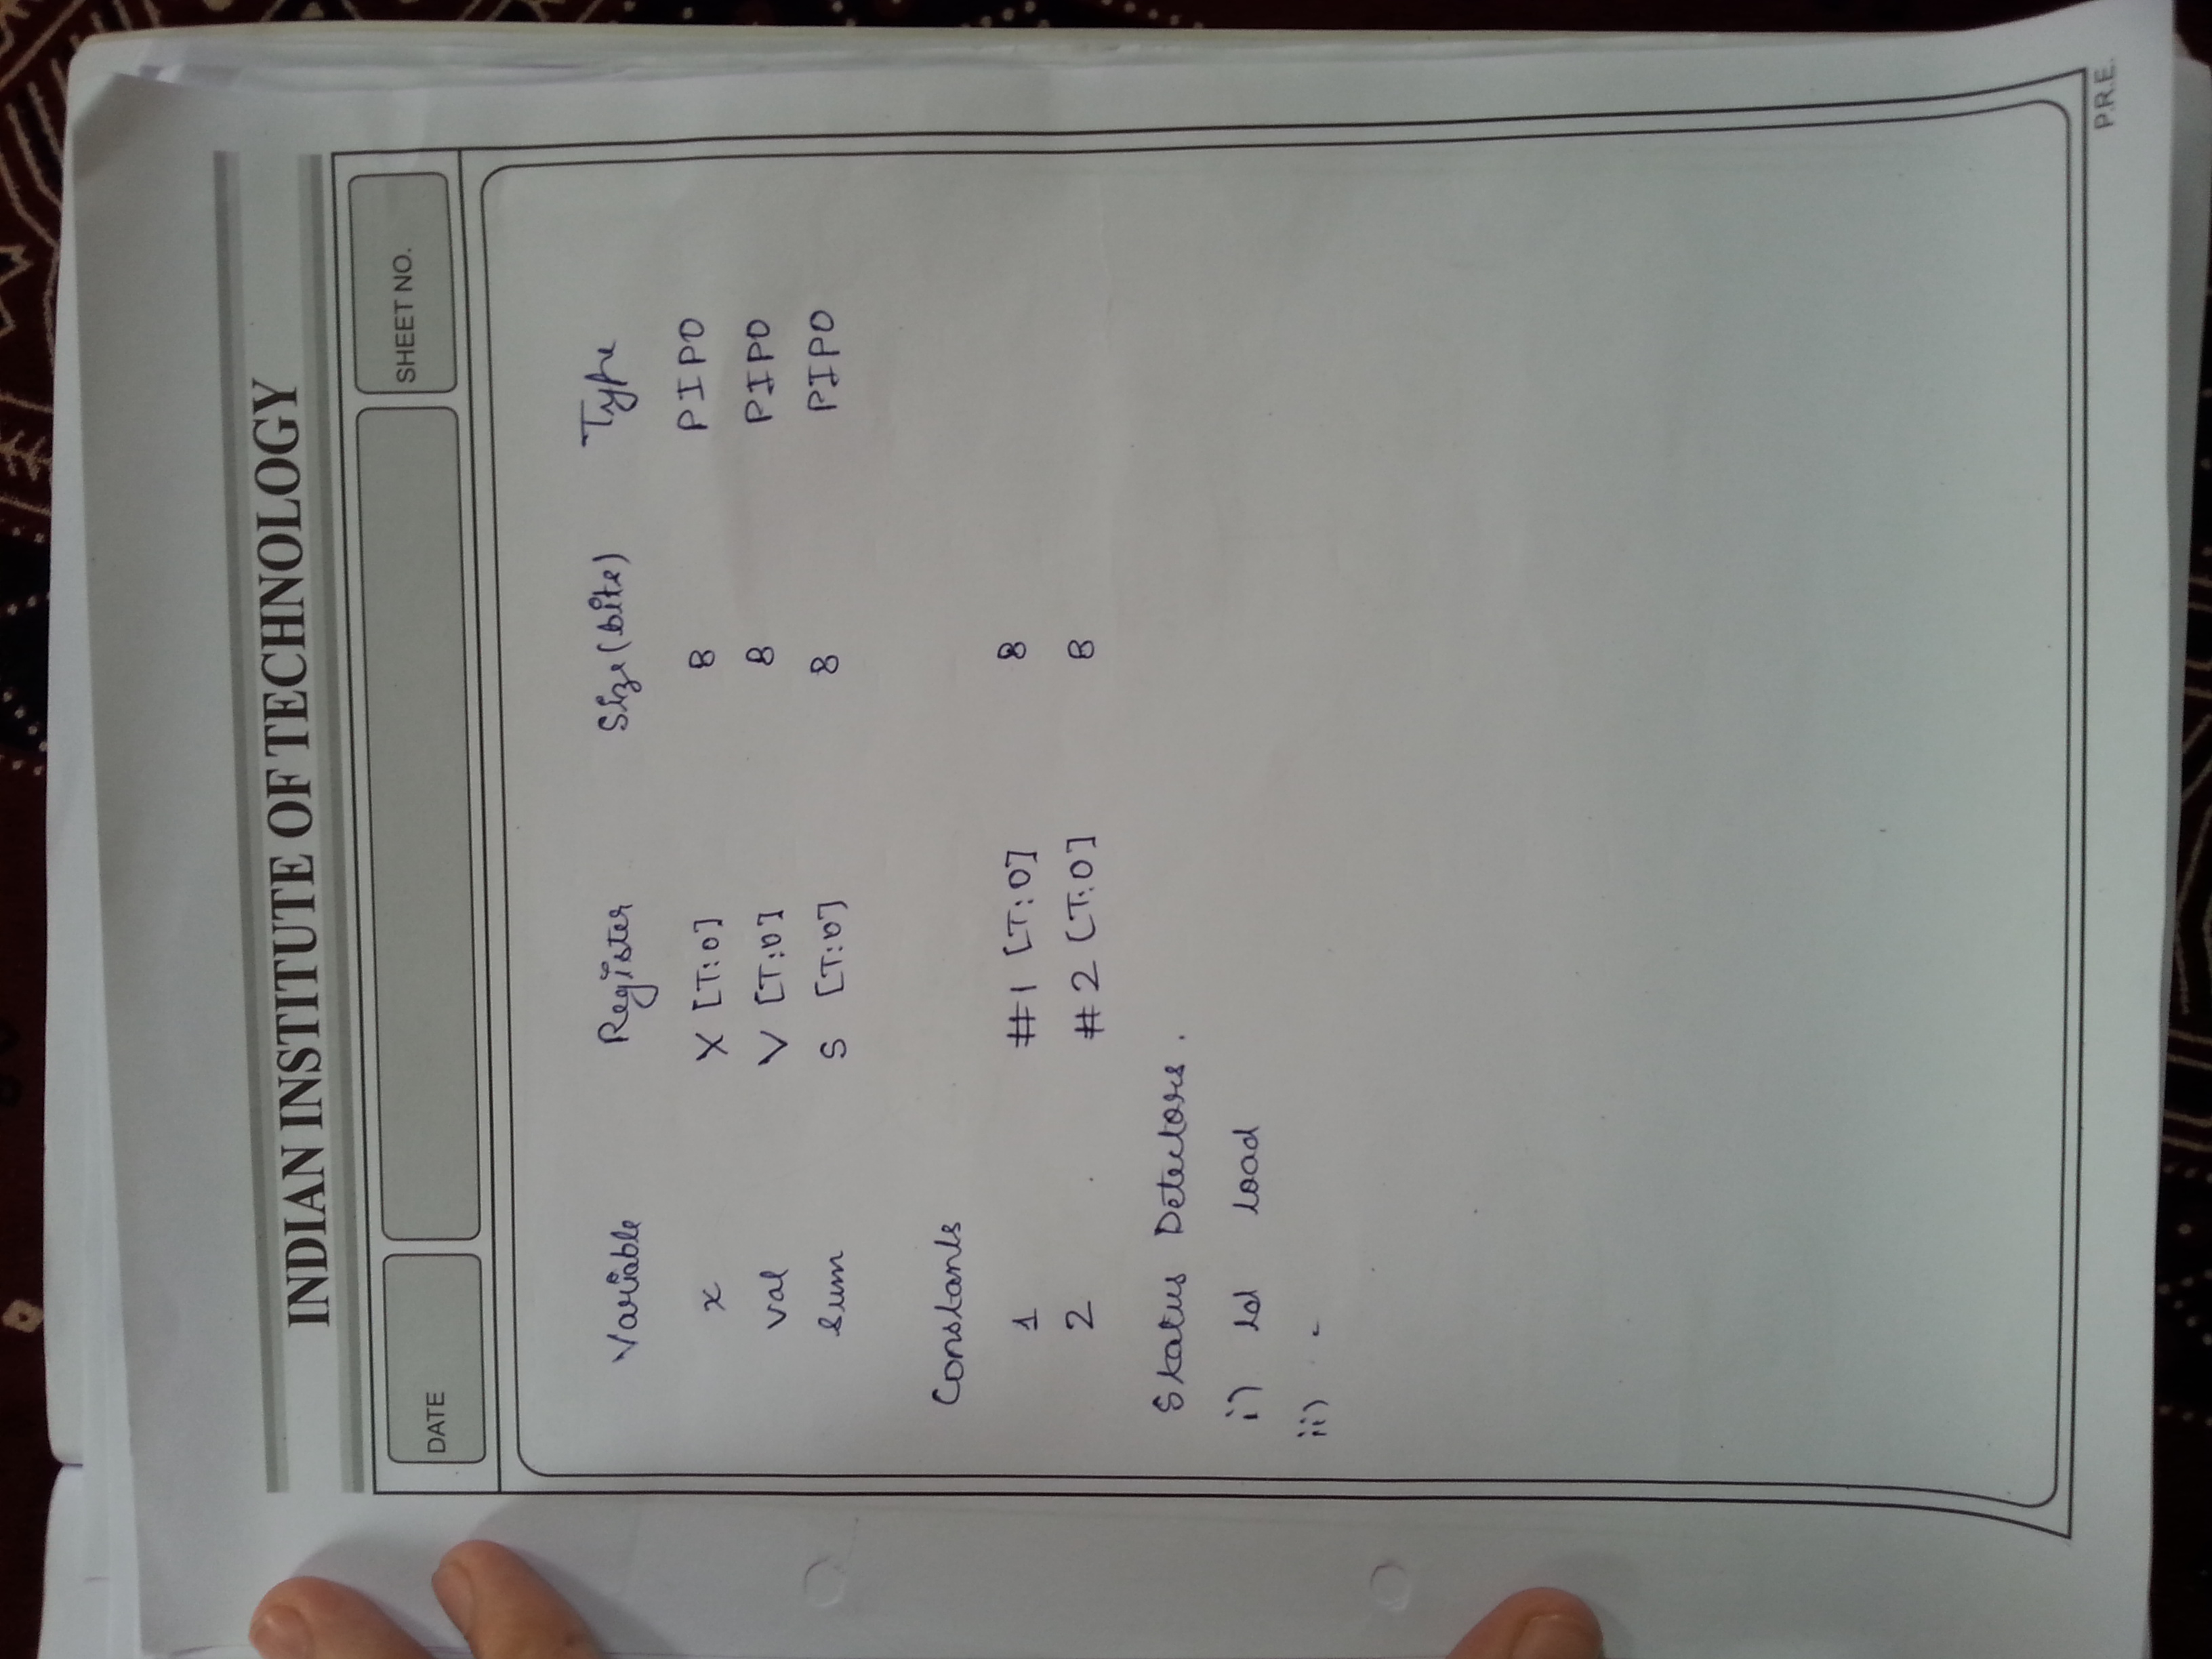 INDIAN INSTITUTE OF TECHNOLOGY
DATE
SHEET NO.
Variable Register Size (bits) Type
x X [7:0] 8 PIPO
val V [7:0] 8 PIPO
Sum S [7:0] 8 PIPO
Constants
1 #1 [7:0] 8
2 #2 [7:0] 8
Status Detectors.
i) ld load
ii) -
P.R.E.